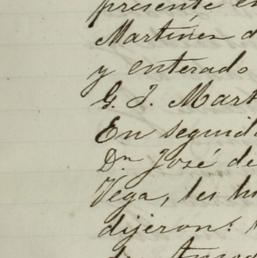 presente en
Martinez d
y enterado
G. J. Mart
En seguid
Dn José de
Vega, les h
dijeron: